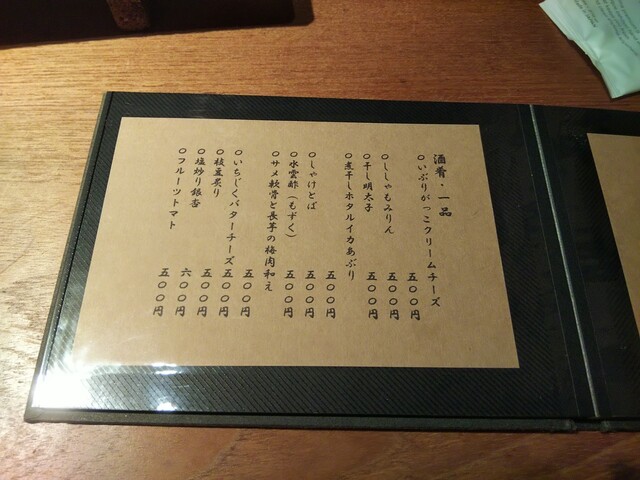 酒肴・一品
〇いぶりがっこクリームチーズ 五〇〇円
〇ししゃもみりん 五〇〇円
〇干し明太子 五〇〇円
〇煮干しホタルイカあぶり 五〇〇円
〇しゃけとば 五〇〇円
〇水雲酢（もずく） 五〇〇円
〇サメ軟骨と長芋の梅肉和え 五〇〇円
〇いちじくバターチーズ 五〇〇円
〇枝豆炙り 五〇〇円
〇塩炒り銀杏 六〇〇円
〇フルーツトマト 五〇〇円